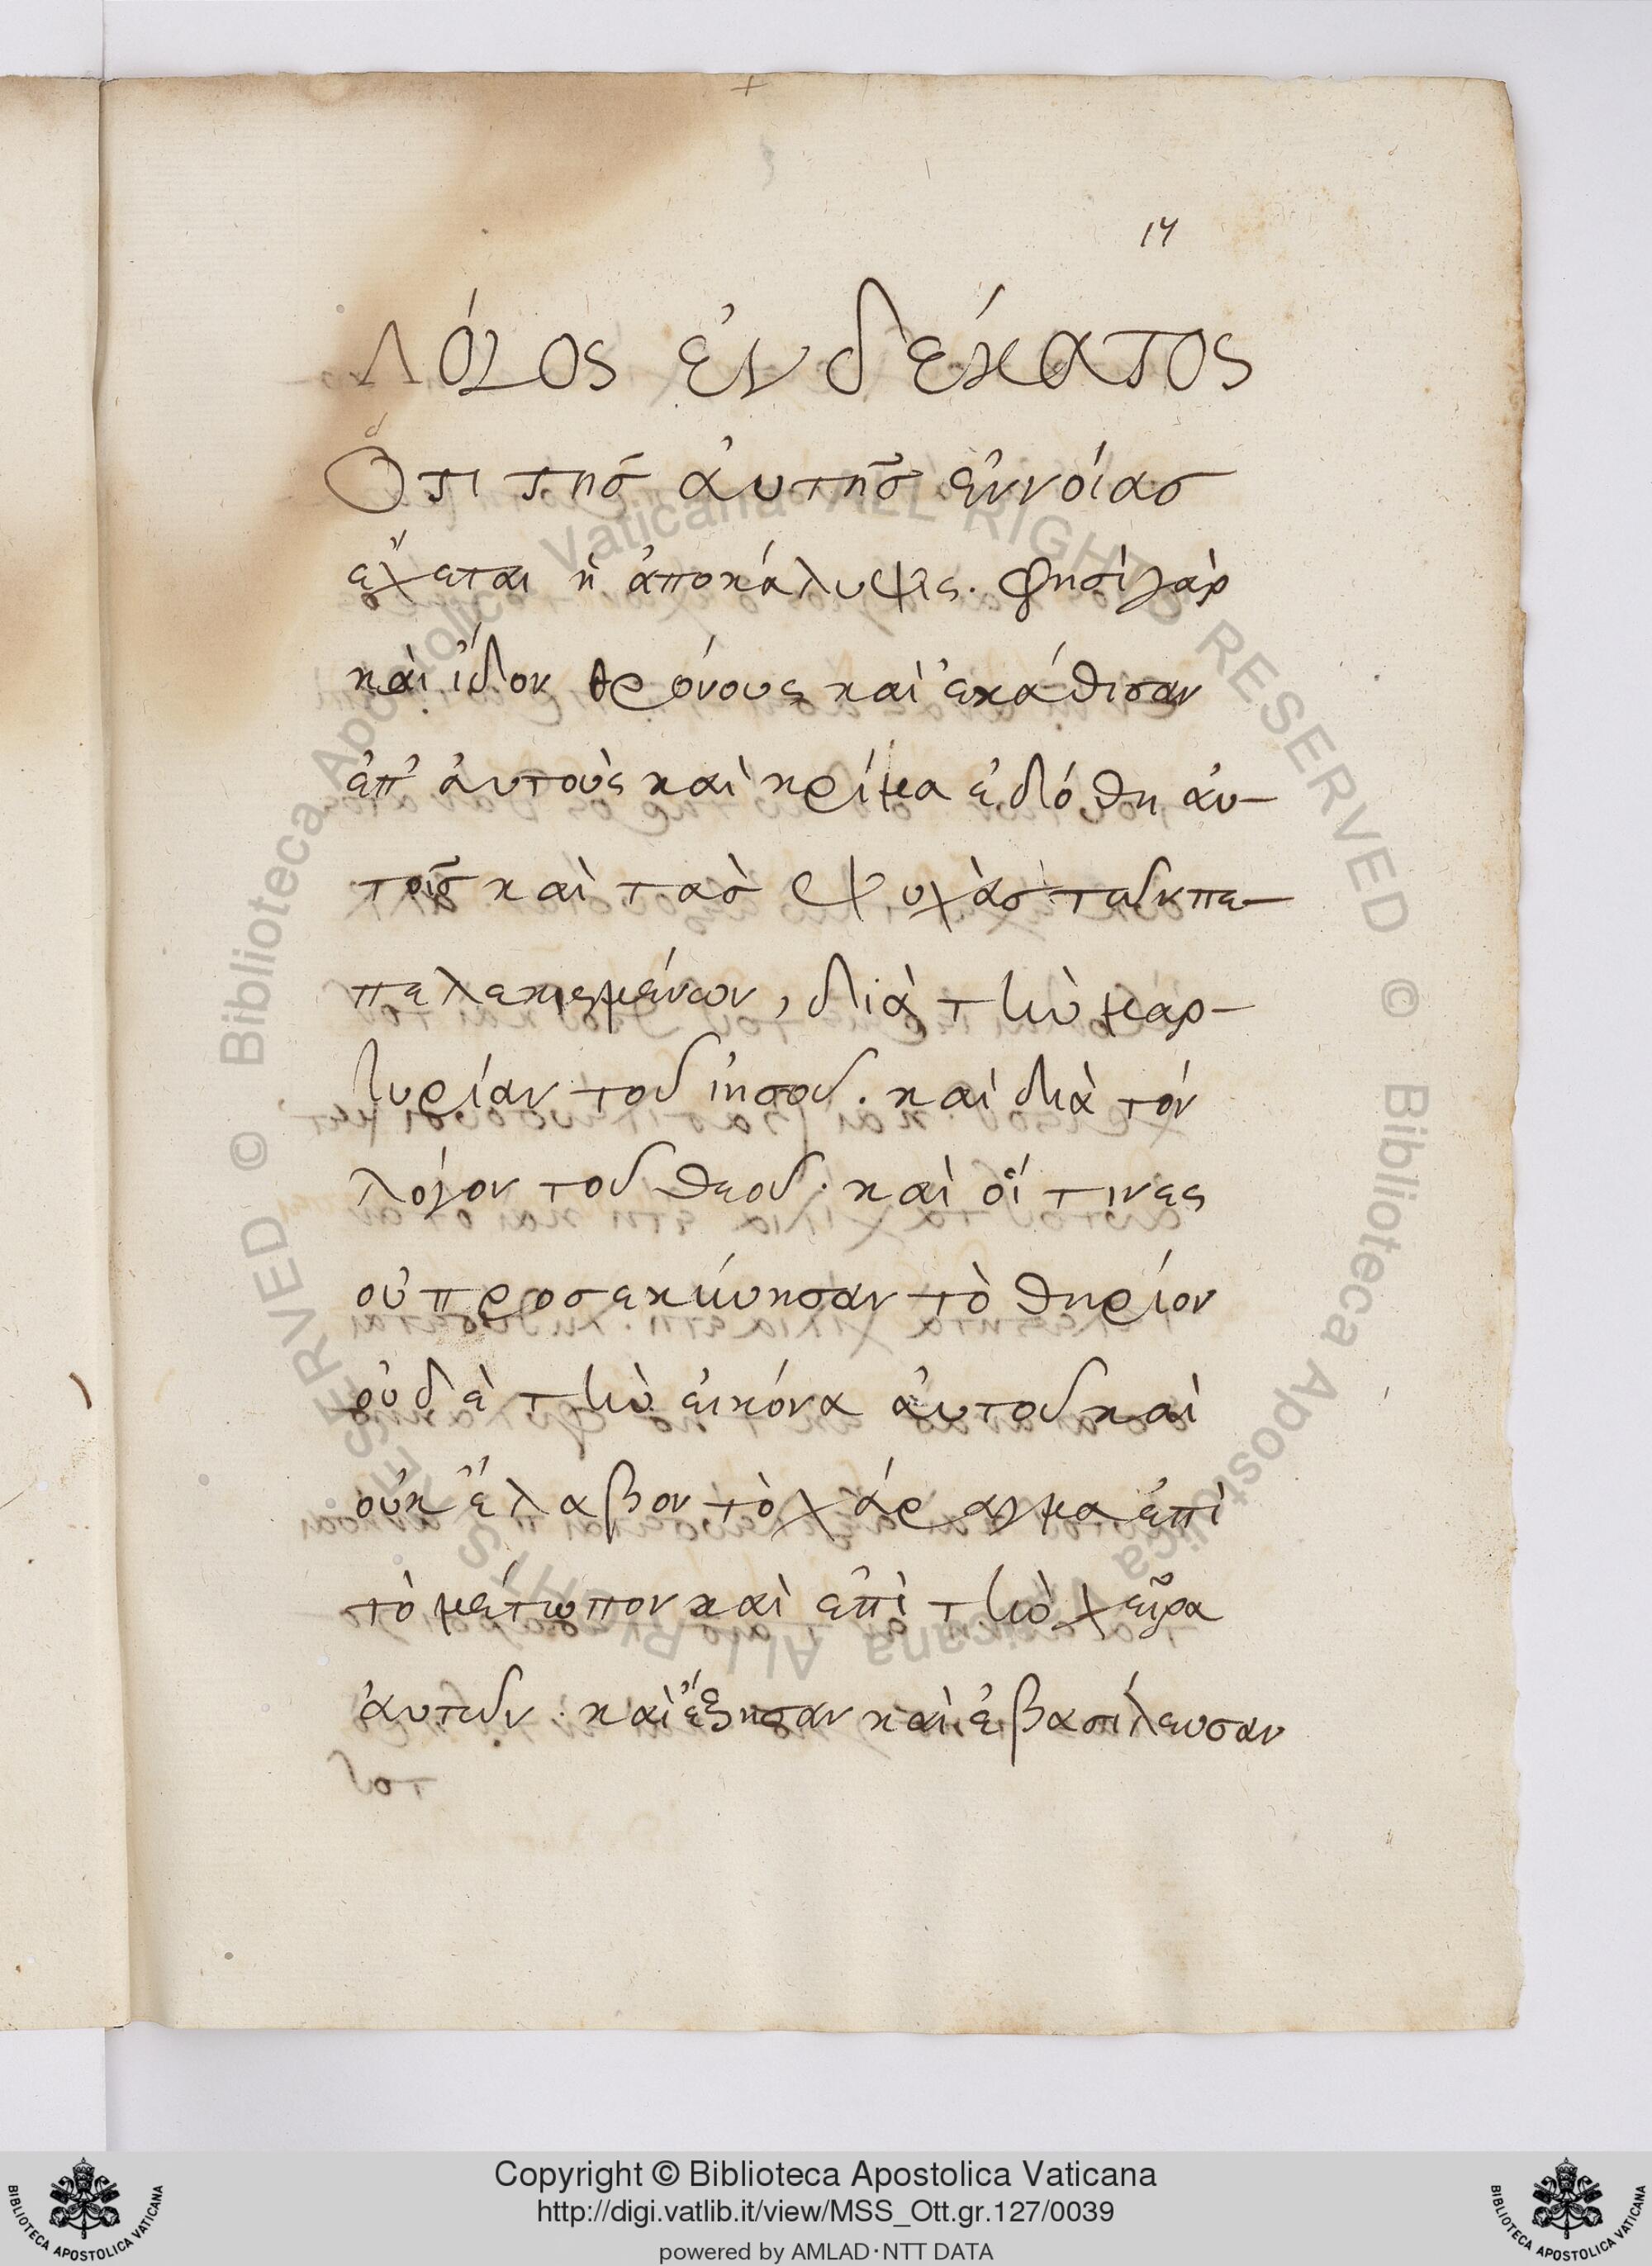 14
Λόγος ἑνδέκατος
Ὅτι τῆς ἀυτῆς ἐννοίας
ἔχεται ἡ ἀποκάλυψις. φησὶ γὰρ
καὶ ἴδον θρόνους καὶ ἐκάθισαν
ἐπ' ἀυτοὺς καὶ κρίμα ἐδόθη ἀυ-
τοῖς καὶ τὰς ψυχὰς τῶν πε-
πελεκισμένων, διὰ τὴν μαρ-
τυρίαν τοῦ ἰησοῦ. καὶ διὰ τὸν
λόγον τοῦ θεοῦ. καὶ οἵ τινες
οὐ προσεκύνησαν τὸ θηρίον
οὐδὲ τὴν εἰκόνα ἀυτοῦ καὶ
οὐκ ἔλαβον τὸ χάραγμα ἐπὶ
τὸ μέτωπον καὶ ἐπὶ τὴν χεῖρα
ἀυτῶν. καὶ ἔζησαν καὶ ἐβασίλευσαν
Copyright © Biblioteca Apostolica Vaticana
http://digi.vatlib.it/view/MSS_Ott.gr.127/0039
powered by AMLAD·NTT DATA
BIBLIOTECA APOSTOLICA VATICANA
BIBLIOTECA APOSTOLICA VATICANA
© Biblioteca Apostolica Vaticana ALL RIGHTS RESERVED © Biblioteca Apostolica Vaticana ALL RIGHTS RESERVED